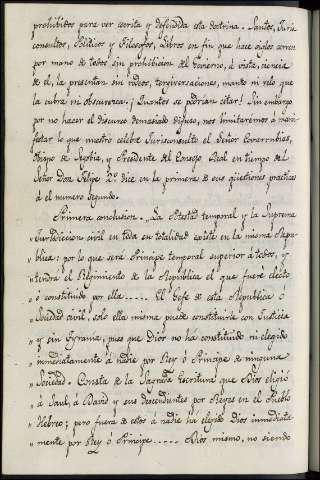 prohibidos para ver escrita y defendida esta doctrina. Santos, Juris-
consultos, Politicos y Filosofos, Libros en fin que hace siglos corren
por mano de todos sin prohibicion del Govierno, á vista, ciencia
de él, la presentan sin rodeos, tergiversaciones, manto ni velo que
la cubra ni obscurezca. ¡Quantos se podrian citar! Sin embargo
por no hacer el discurso demasiado difuso, nos limitaremos á mani-
festar lo que nuestro célebre Jurisconsulto el Señor Covarrubias,
Obispo de Segobia, y Presidente del Consejo Real en tiempo del
Señor Don Felipe 2º dice en la primera de sus qüestiones practicas
á el numero segundo.
Primera conclusion. „La Potestad temporal y la Suprema
„Jurisdiccion civil en toda su totalidad existe en la misma Repu-
„blica: por lo que será Principe temporal superior á todos, y
„tendrá el Regimiento de la Republica el que fuere electo
„ó constituido por ella..... El Gefe de esta Republica ó
„Sociedad civil, solo ella misma puede constituirle con Justicia
„y sin tyrania, pues que Dios no ha constituido ni elegido
„inmediatamente á nadie por Rey ó Principe de ninguna
„Sociedad. Consta de la Sagrada Escritura que Dios eligió
„á Saul, á David y sus descendientes por Reyes en el Pueblo
„Hebreo; pero fuera de estos á nadie ha elegido Dios inmediata
„mente por Rey ó Principe..... Dios mismo, no siendo